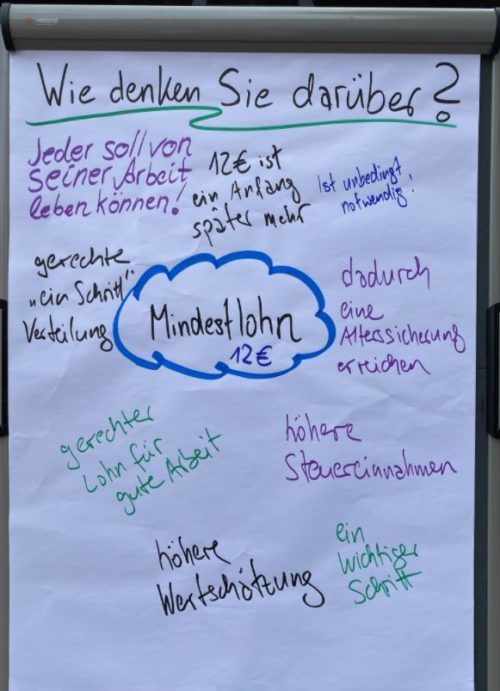 Wie denken Sie darüber?
Jeder soll von
seiner Arbeit
leben können!
12€ ist
ein Anfang
später mehr
Ist unbedingt
notwendig!
gerechte
„ein Schritt“
Verteilung
Mindestlohn
12€
dadurch
eine
Alterssicherung
erreichen
gerechter
Lohn für
gute Arbeit
höhere
Steuereinnahmen
höhere
Wertschätzung
ein
wichtiger
Schritt